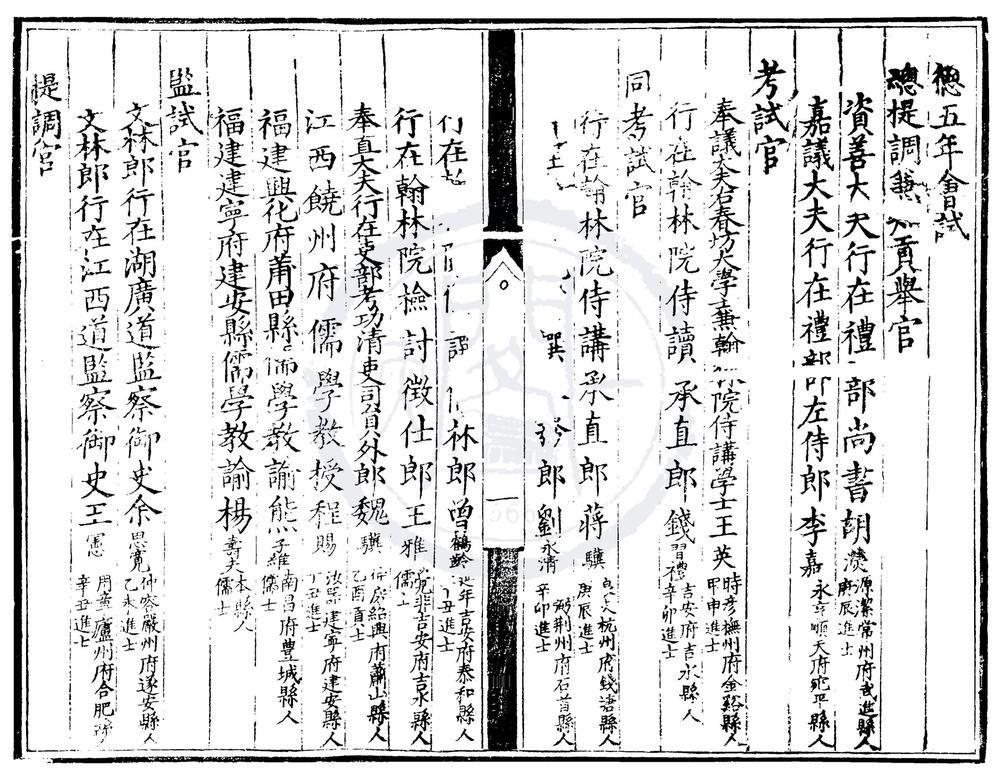 德五年會試
總提調兼知貢舉官
資善大夫行在禮部尚書胡濙源潔常州府武進縣人庚辰進士
嘉議大夫行在禮部左侍郎李嘉永亨順天府宛平縣人
考試官
奉議大夫右春坊大學士兼翰林院侍講學士王英時彥撫州府金谿縣人甲申進士
行在翰林院侍讀承直郎錢習禮吉安府吉水縣人辛卯進士
同考試官
行在翰林院侍講承直郎蔣驥杭州府錢塘縣人庚辰進士
撰郎劉永清荆州府石首縣人辛卯進士
行在林郎曾鶴齡年吉安府泰和縣人丑進士
行在翰林院檢討徵仕郎王雅吉安府吉水縣人儒士
奉直大夫行在吏部考功清吏司員外郎魏驥紹興府蕭山縣人乙酉貢士
江西饒州府儒學教授程賜建寧府建安縣人丁丑進士
福建興化府莆田縣儒學教諭熊南昌府豐城縣人儒士
福建建寧府建安縣儒學教諭楊壽夫本縣人儒士
監試官
文林郎行在湖廣道監察御史余思寬嚴州府遂安縣人乙未進士
文林郎行在江西道監察御史王憲用章廬州府合肥縣人辛丑進士
提調官